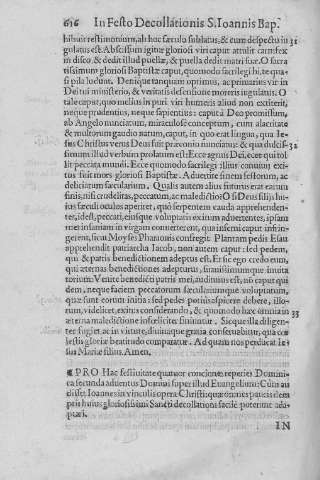 616 In Festo Decollationis S. Ioannis Bap.
hibuit testimonium, ab hoc sæculo sublatus, & cum despectu iu 31
gulatus est. Abscissum igitur gloriosi viri caput attulit carnifex
in disco & dedit illud puellæ, & puella dedit matri suæ. O sacra
tissimum gloriosi Baptistæ caput, quomodo sacrilegi hi, te qua
si pila ludunt. Denique tanquam optimus, ac primarius vir in
Dei tui ministerio, & veritatis defensione moreris iugulatus. O
tale caput, quo melius in puri viri humeris aliud non extiterit,
neque prudentius, neque sapientius: caput à Deo promissum,
ab Angelo nunciatum, miraculosè conceptum, cum alacritate
& multorum gaudio natum, caput, in quo erat lingua, qua Ie-
sus Christus verus Deus fuit prænonio nunciatus: & qua dulcis- 32
simum illud verbum prolatum est: Ecce agnus Dei, ecce qui tol
lit peccata mundi. Ecce quomodo sacrilegi illius conuiuij exi-
tus fuit mors gloriosi Baptistæ. Aduertite finem festorum, ac
deliciarum sæcularium. Qualis autem alius futurus erat earum
finis, nisi crudelitas, peccatum, ac maledictio? O si Deus filijs hu-
ius sæculi oculos aperiret, quò serpentem cauda apprehenden-
tes, id est, peccati, eiusque voluptatis exitum aduertentes, ipsam
met insaniam in virgam conuerterent, qua inferni caput infrin-
gerent, sicut Moyses Pharaonis confregit. Plantam pedis Esau
apprehendit patriarcha Iacob, non autem caput: sed pedem,
qui & patris benedictionem adeptus est. Et sic ego credo eum,
qui æternas benedictiones adepturus, suauissimumque inuita
torium: Venite benedicti patris mei, auditurus est, nõ caput qui
dem, neque faciem peccatorum sæculariumque voluptatum,
quæ sunt eorum initia: sed pedes potius aspicere debere, illo-
rum, videlicet, exitus considerando, & quomodo hæc omnia in 33
æterna maledictione infœlicitèr finiuntur. Sicque illa diligen-
ter fugiet, ac in virtute, diuinaque gratia conseruabitur, qua cæ
lestis gloriæ beatitudo comparatur. Ad quam nos perducat Ie-
sus Mariæ filius. Amen.
¶ PRO Hac festiuitate quatuor conciones reperies Domini-
ca secunda aduentus Domini super illud Euangelium: Cùm au
disset Ioannes in vinculis opera Christi: quæ omnes paucis dem
ptis huius gloriosissimi Sancti decollationi facilè poterunt ada-
ptari.
IN